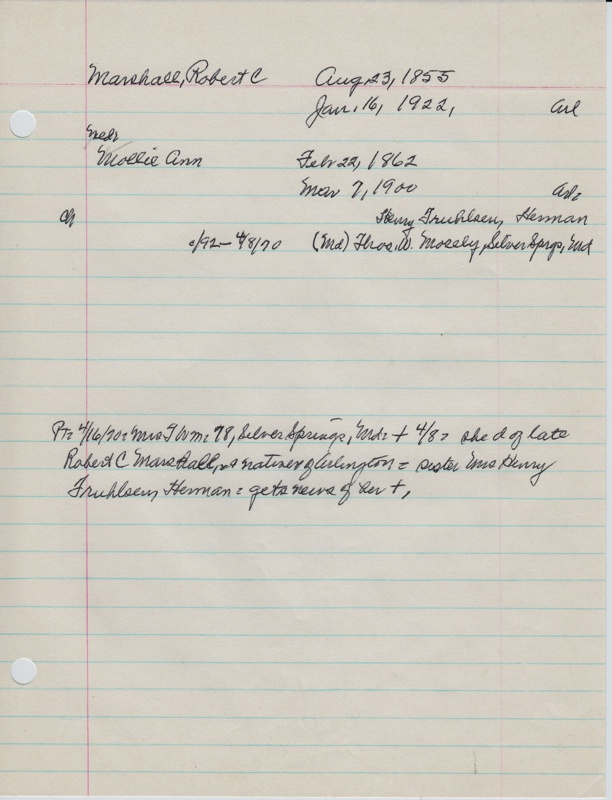 Marshall, Robert C Aug. 23, 1855
Jan. 16, 1922, Arl
Mollie Ann Feb 22, 1862
Mar 7, 1900 Arl
ch Henry Fruhlsen, Herman
c/92 – 4/8/70 (Md) Thos. W. Mosely, Silver Sprgs, Md
Pt= 4/16/70= Mrs T W M= 78, Silver Springs, Md= + 4/8= she d of late
Robert C Marshall, natives of Arlington = sister Mrs Henry
Fruhlsen, Herman = gets news of her +,